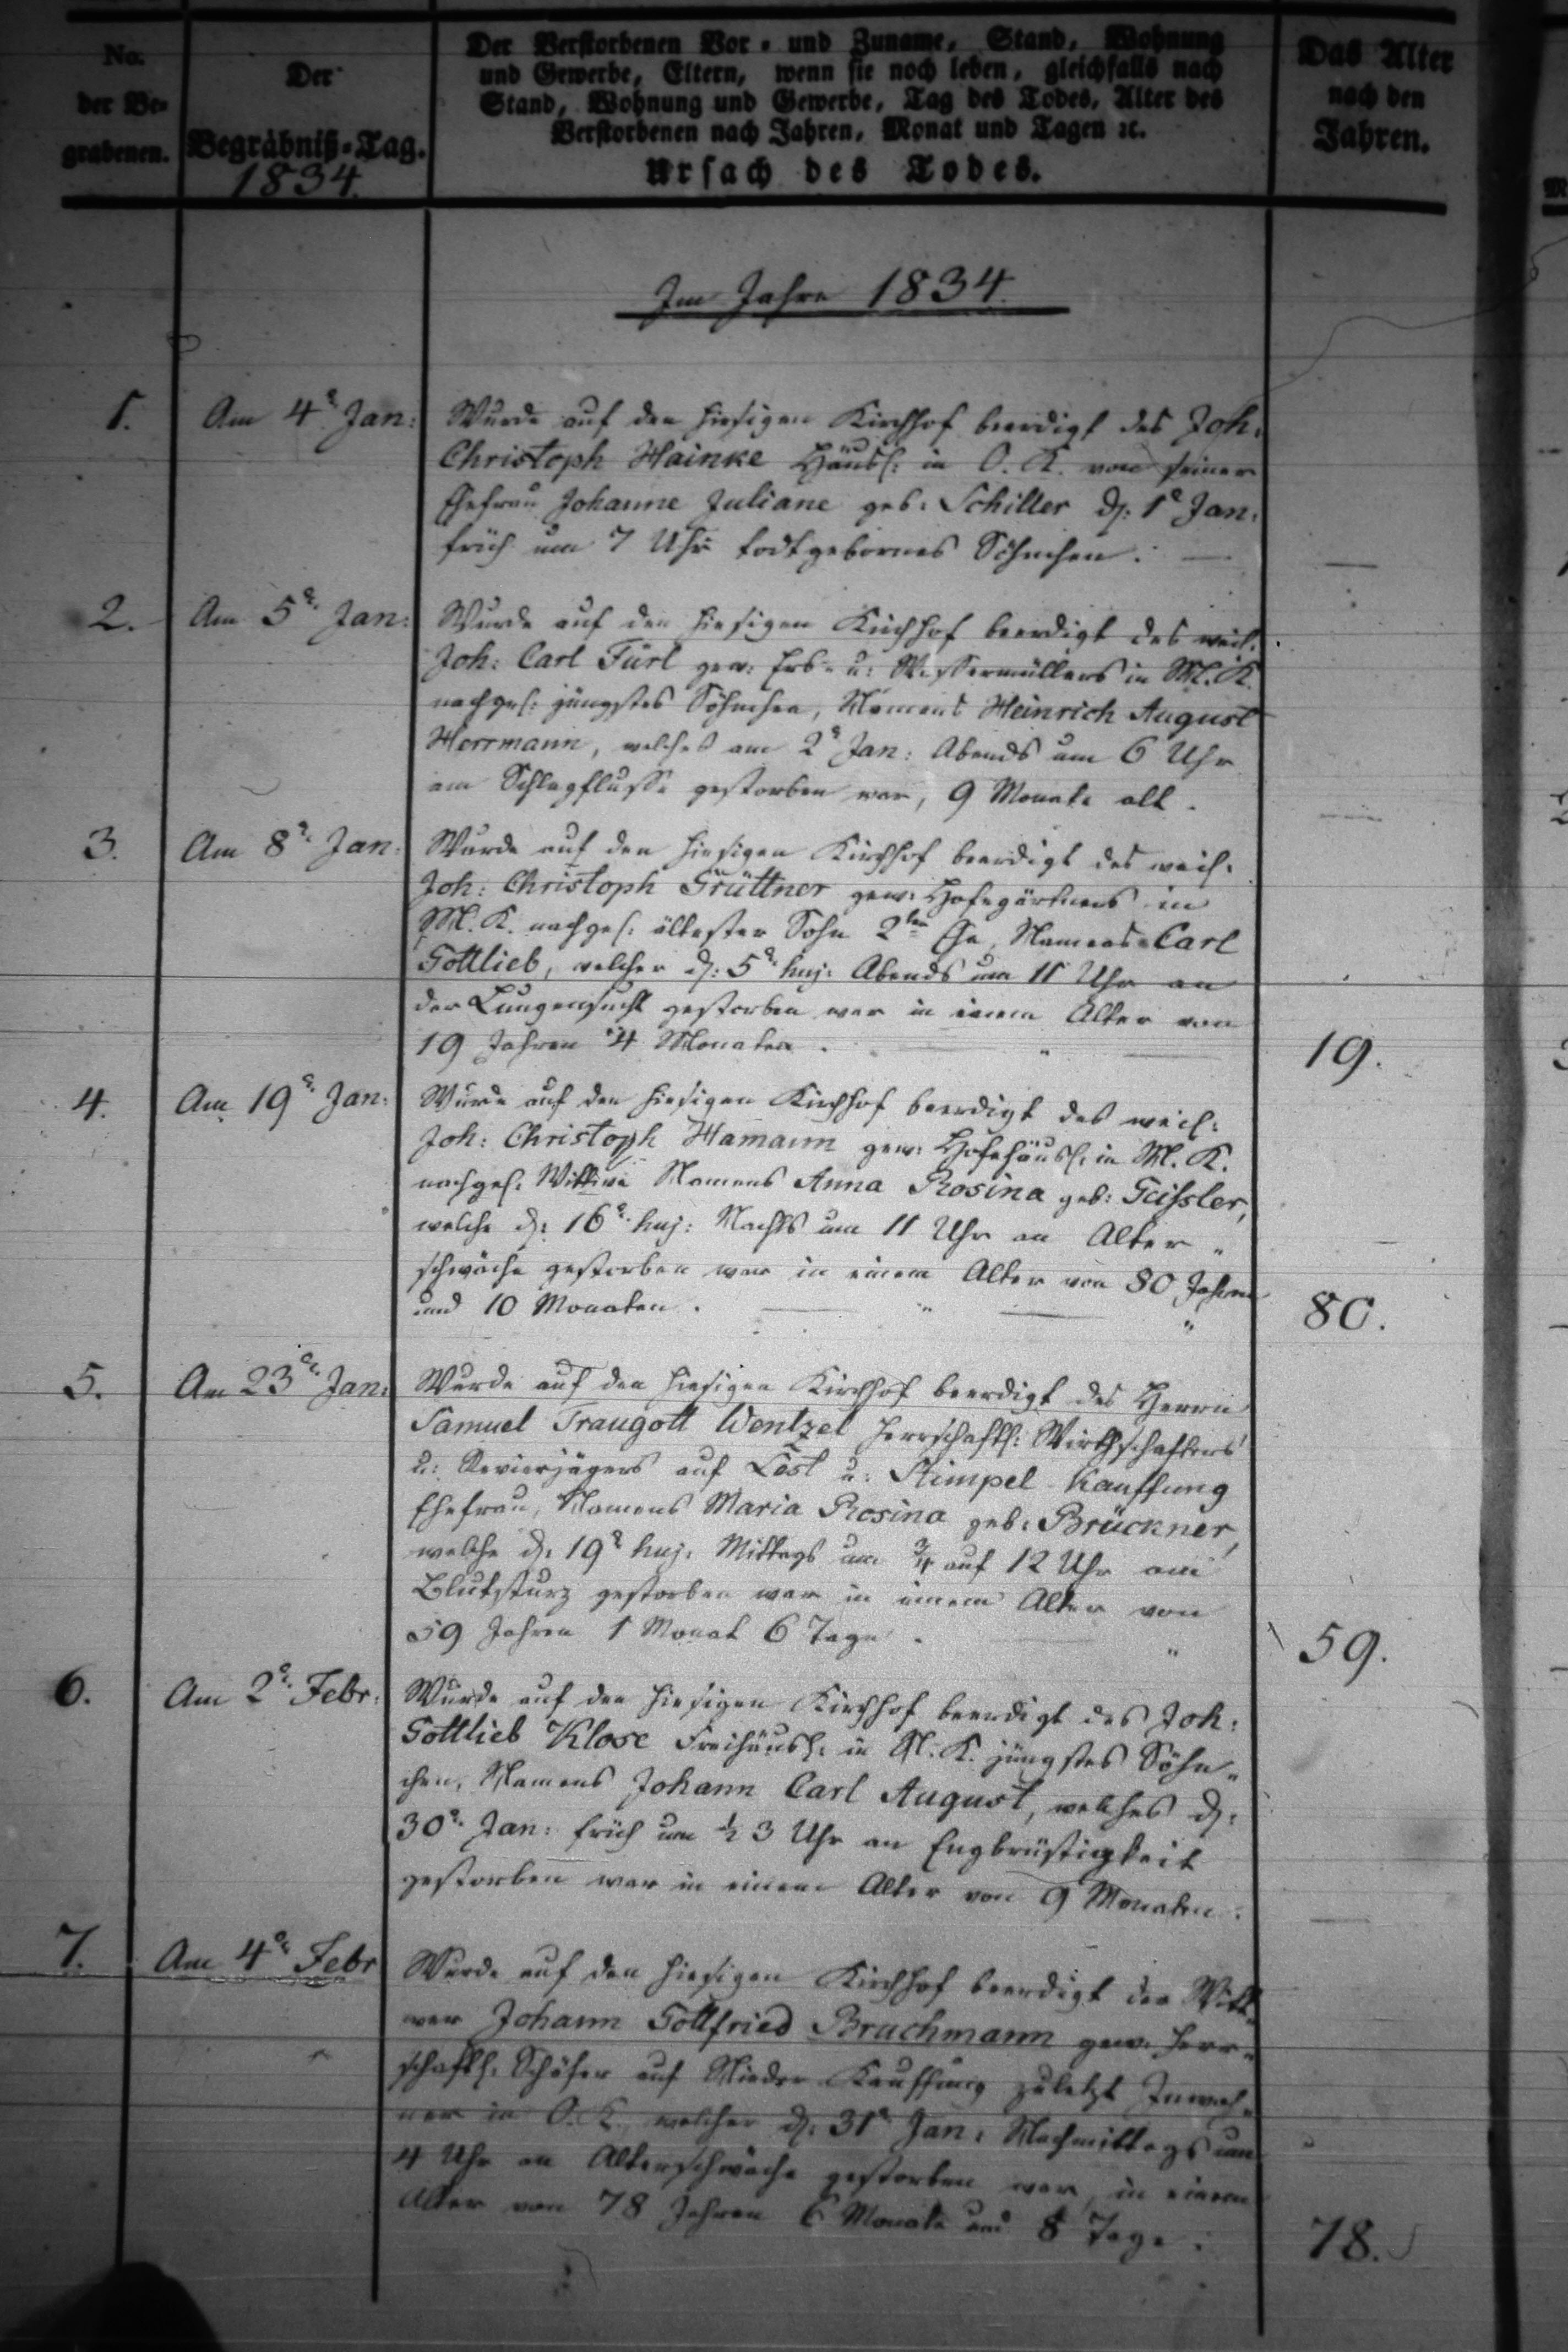 No.
der Be-
grabenen.
Der
Begräbniß-Tag.
1834.
Der Verstorbenen Vor- und Zuname, Stand, Wohnung
und Gewerbe, Eltern, wenn sie noch leben, gleichfalls nach
Stand, Wohnung und Gewerbe, Tag des Todes, Alter des
Verstorbenen nach Jahren, Monat und Tagen ꝛc.
Ursach des Todes.
Das Alter
nach den
Jahren.
Im Jahre 1834.
1.
Am 4. Jan:
Wurde auf den hiesigen Kirchhof beerdigt des Joh:
Christoph Hainke Häusl: in O. K. von seiner
Ehefrau Johanne Juliane geb: Schiller d: 1 Jan:
früh um 7 Uhr todtgebornes Söhnchen. —
—
2.
Am 5. Jan:
Wurde auf den hiesigen Kirchhof beerdigt des weil:
Joh: Carl Fürl gew: Erb- u: Wassermüllers in M. K.
nachgel: jüngstes Söhnchen, Namens Heinrich August
Herrmann, welches am 2 Jan: Abends um 6 Uhr
am Schlagflusse gestorben war, 9 Monate alt.
—
3.
Am 8. Jan:
Wurde auf den hiesigen Kirchhof beerdigt des weil:
Joh: Christoph Grüttner gew: Hofegärtners in
M. K. nachgel: ältester Sohn 2ter Ehe, Namens Carl
Gottlieb, welcher d: 5 huj: Abends um 11 Uhr an
der Lungensucht gestorben war in einem Alter von
19 Jahren 4 Monaten.
19.
4.
Am 19. Jan:
Wurde auf den hiesigen Kirchhof beerdigt des weil:
Joh: Christoph Hamann gew: Hofehäusl: in M. K.
nachgel: Wittwe Namens Anna Rosina geb: Geißler,
welche d: 16 huj: Nachts um 11 Uhr an Alter-
schwäche gestorben war in einem Alter von 80 Jahren
und 10 Monaten.
80.
5.
Am 23. Jan:
Wurde auf den hiesigen Kirchhof beerdigt des Herrn
Samuel Traugott Wentzel herrschaftl: Wirthschafters
u: Revierjägers auf Lest u: Stimpel Kauffung
Ehefrau, Namens Maria Rosina geb: Brückner,
welche d: 19 huj: Mittags um 3/4 auf 12 Uhr am
Blutsturz gestorben war in einem Alter von
59 Jahren 1 Monat 6 Tage.
59.
6.
Am 2. Febr:
Wurde auf den hiesigen Kirchhof beerdigt des Joh:
Gottlieb Klose Freihäusl: in K. jüngstes Söhn-
chen, Namens Johann Carl August, welches d:
30. Jan: früh um ½ 3 Uhr an Engbrüstigkeit
gestorben war in einem Alter von 9 Monaten.
—
7.
Am 4. Febr
Wurde auf den hiesigen Kirchhof beerdigt der Witt-
wer Johann Gottfried Bruchmann gew: herr-
schaftl: Schäfer auf Nieder Kauffung zuletzt Inwoh-
ner in O. K. welcher d: 31 Jan: Nachmittags um
4 Uhr an Alterschwäche gestorben war, in einem
Alter von 78 Jahren 6 Monate und 8 Tage.
78.